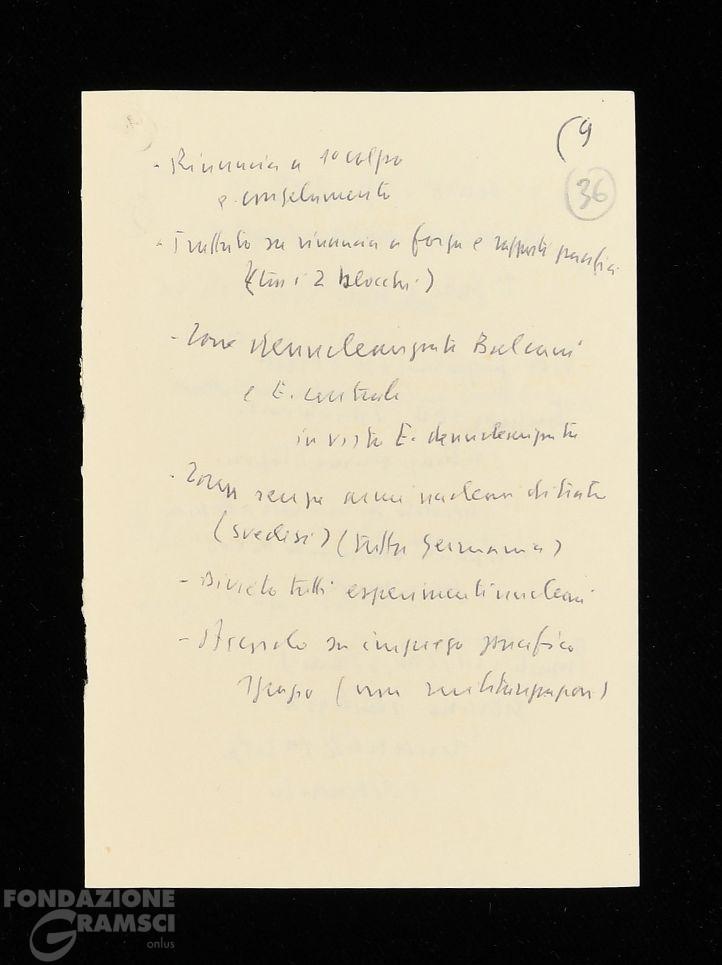 (9
36
- Rinuncia a 1° colpo
e congelamento
- Trattato su rinuncia a forza e rapporti pacifici
(tra i 2 blocchi)
- Zone denuclearizzate Balcani
e E. centrale
in vista E. denuclearizzata
- Zona senza armi nucleari
(svedesi) (tutta Germania)
- Divieto tutti esperimenti nucleari
- Accordo su impiego pacifico
spazio (non militarizzazione)
FONDAZIONE
GRAMSCI
onlus